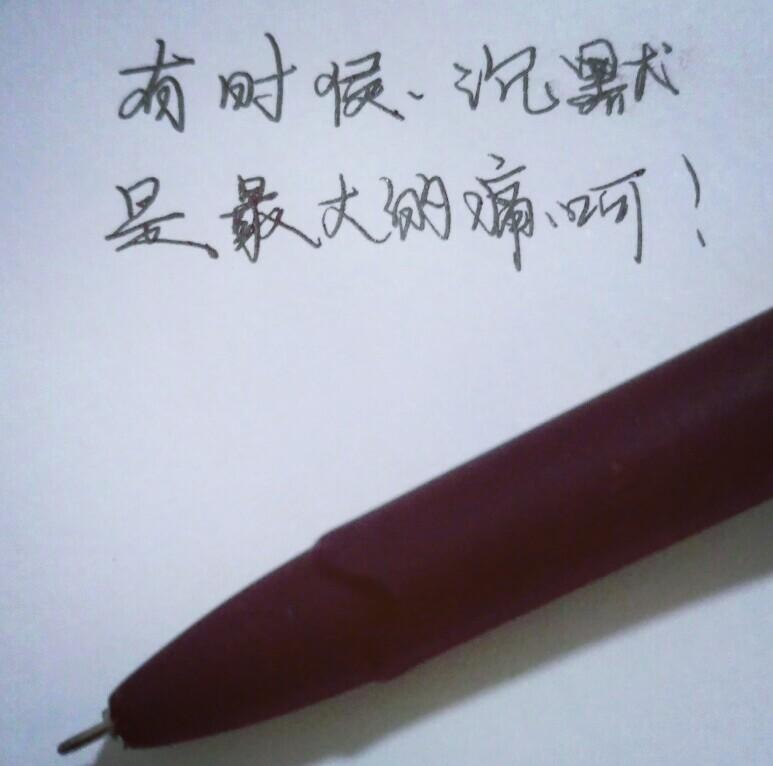 有时候、沉默
是最大的痛、呵！